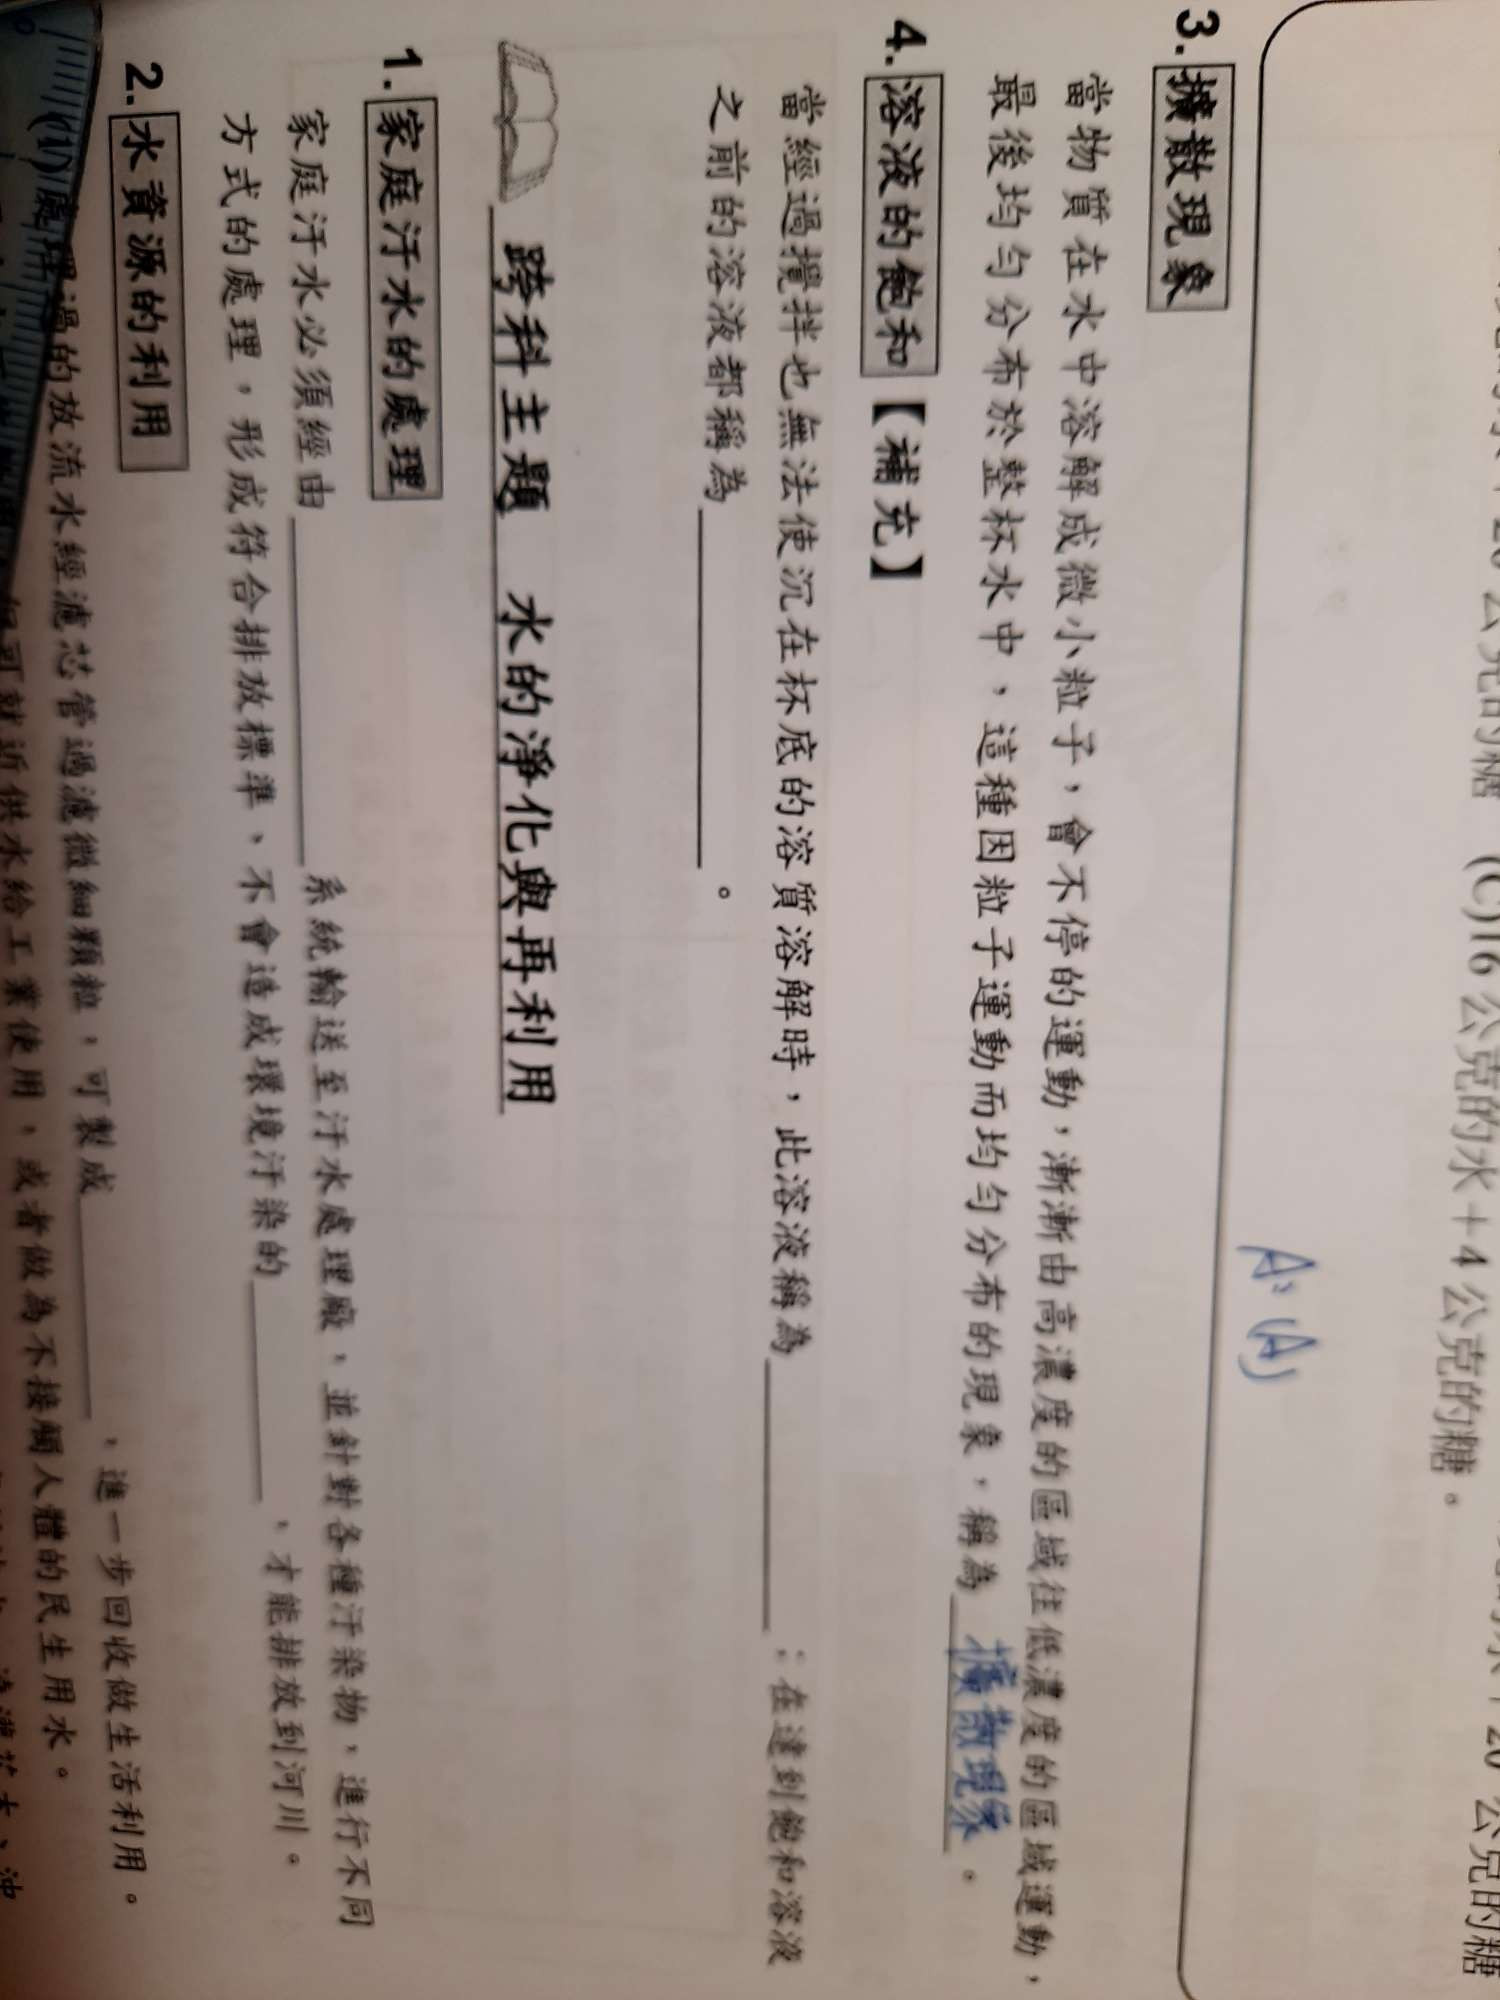 20 公克的糖 (C)16 公克的水＋4 公克的糖。
20 公克的糖
A:(A)
3. 擴散現象
當物質在水中溶解成微小粒子，會不停的運動，漸漸由高濃度的區域往低濃度的區域運動，
最後均勻分布於整杯水中，這種因粒子運動而均勻分布的現象，稱為 擴散現象 。
4. 溶液的飽和【補充】
當經過攪拌也無法使沉在杯底的溶質溶解時，此溶液稱為＿＿＿＿；在達到飽和溶液
之前的溶液都稱為＿＿＿＿。
跨科主題 水的淨化與再利用
1. 家庭汙水的處理
家庭汙水必須經由＿＿＿＿系統輸送至汙水處理廠，並針對各種汙染物，進行不同
方式的處理，形成符合排放標準、不會造成環境汙染的＿＿＿＿，才能排放到河川。
2. 水資源的利用
(1)處理過的放流水經濾芯管過濾微細顆粒，可製成＿＿＿＿，進一步回收做生活利用。
可就近供水給工業使用，或者做為不接觸人體的民生用水。